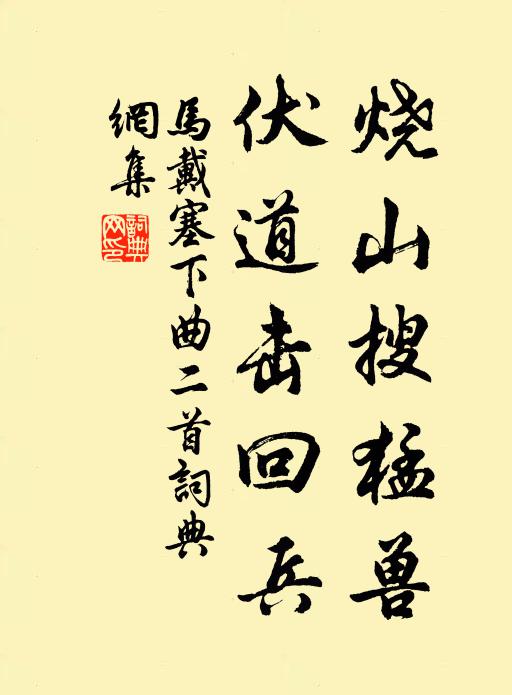 烧山搜猛兽
伏道击回兵
馬戴塞下曲二首詞典
網集
詞典
网印